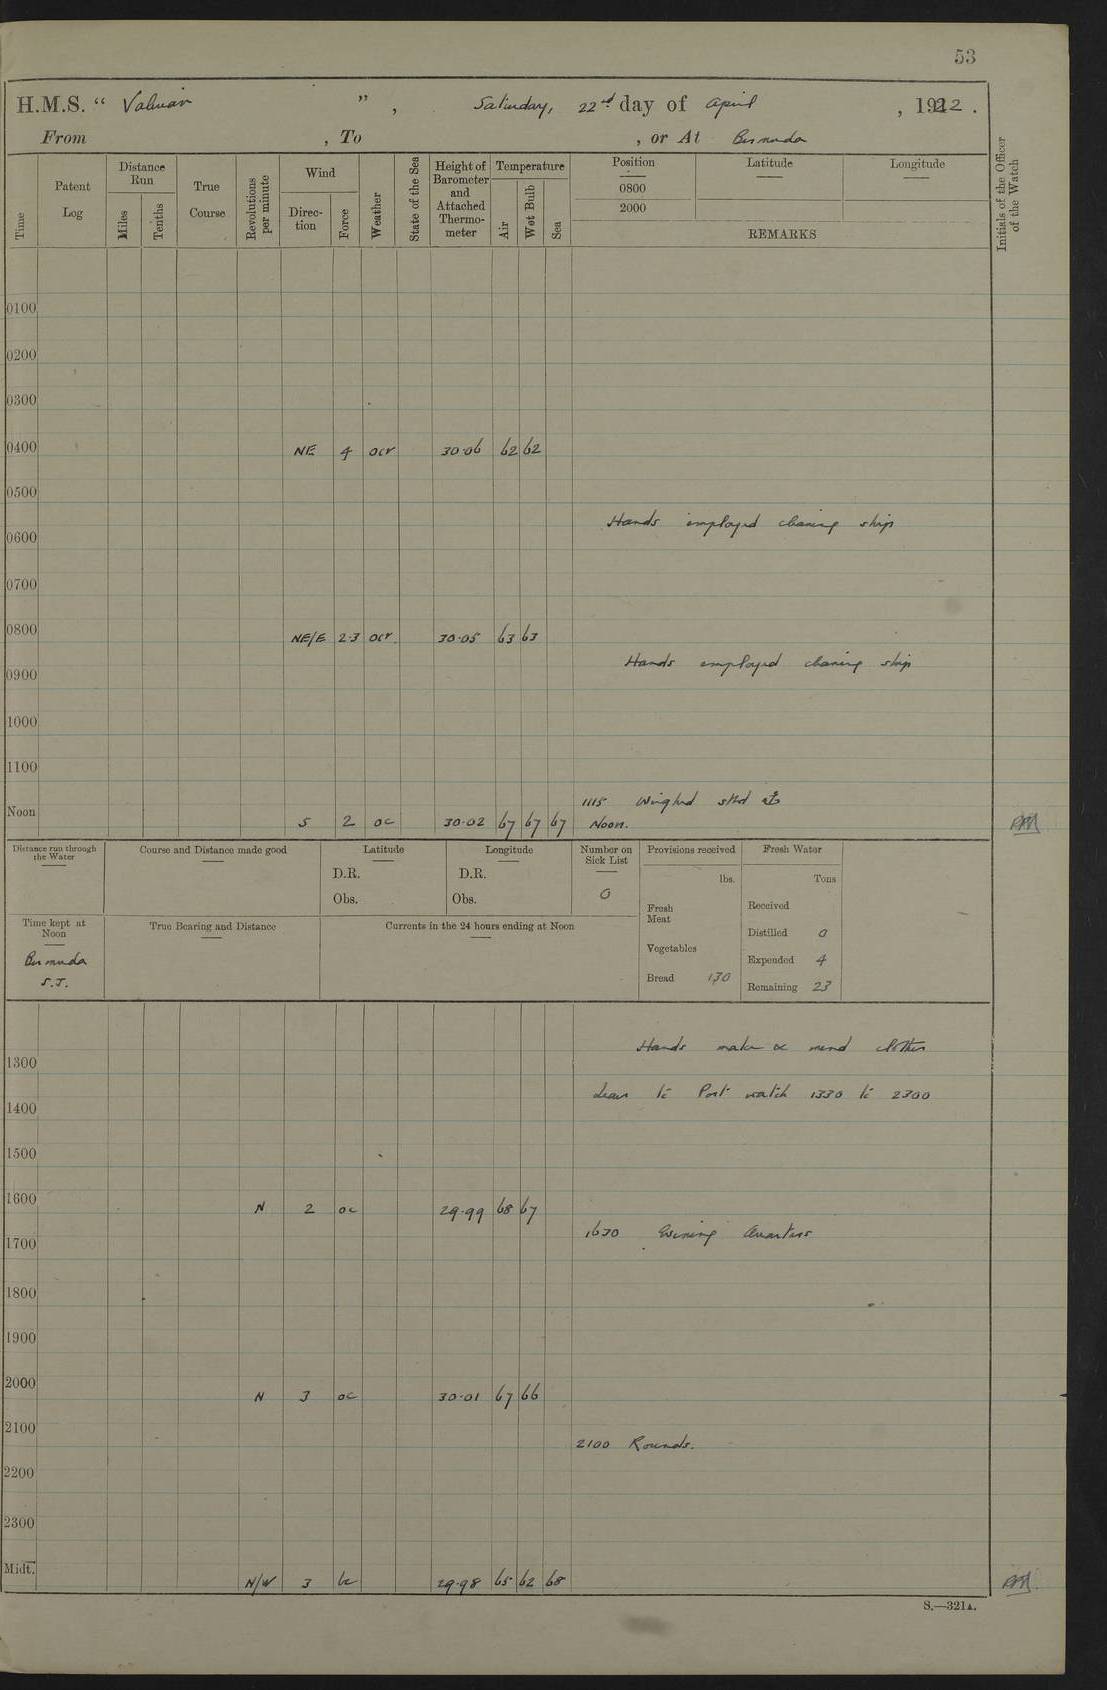 53
H.M.S. " Valerian ", Saturday, 22nd day of April, 1922.
From , To , or At Bermuda
Time
Patent Log
Distance Run
Miles
Tenths
True Course
Revolutions per minute
Wind
Direction
Force
Weather
State of the Sea
Height of Barometer and Attached Thermometer
Temperature
Air
Wet Bulb
Sea
Position
0800
2000
Latitude
Longitude
REMARKS
Initials of the Officer of the Watch
0100
0200
0300
0400 NE 4 ocr 30·06 62 62
0500
Hands employed cleaning ship
0600
0700
0800 NE/E 2-3 ocr 30·05 63 63
Hands employed cleaning ship
0900
1000
1100
1115 Weighed stbd
Noon S 2 oc 30·02 67 67 67 Noon.
Distance run through the Water
Course and Distance made good
Latitude
D.R.
Obs.
Longitude
D.R.
Obs.
Number on Sick List
0
Provisions received
lbs.
Fresh Meat
Vegetables
Bread 130
Fresh Water
Tons
Received
Distilled 0
Expended 4
Remaining 23
Time kept at Noon
Bermuda
S.T.
True Bearing and Distance
Currents in the 24 hours ending at Noon
Hands make & mend clothes
1300
Leave to Port watch 1330 to 2300
1400
1500
1600 N 2 oc 29·99 68 67
1630 Evening Quarters
1700
1800
1900
2000 N 3 oc 30·01 67 66
2100
2100 Rounds.
2200
2300
Midt. N/W 3 bc 29·98 65 62 68
S.—321A.